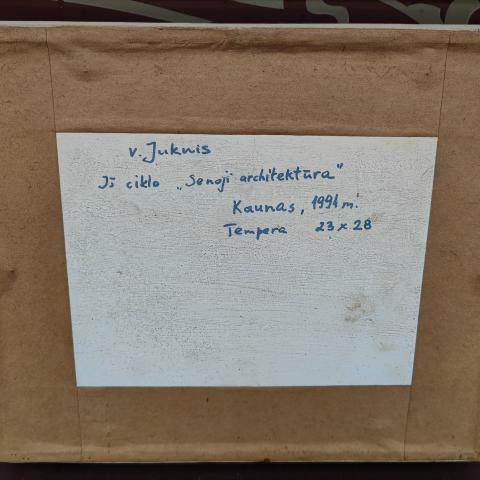 V. Juknis
Iš ciklo „Senoji architektūra"
Kaunas, 1991 m.
Tempera 23 x 28